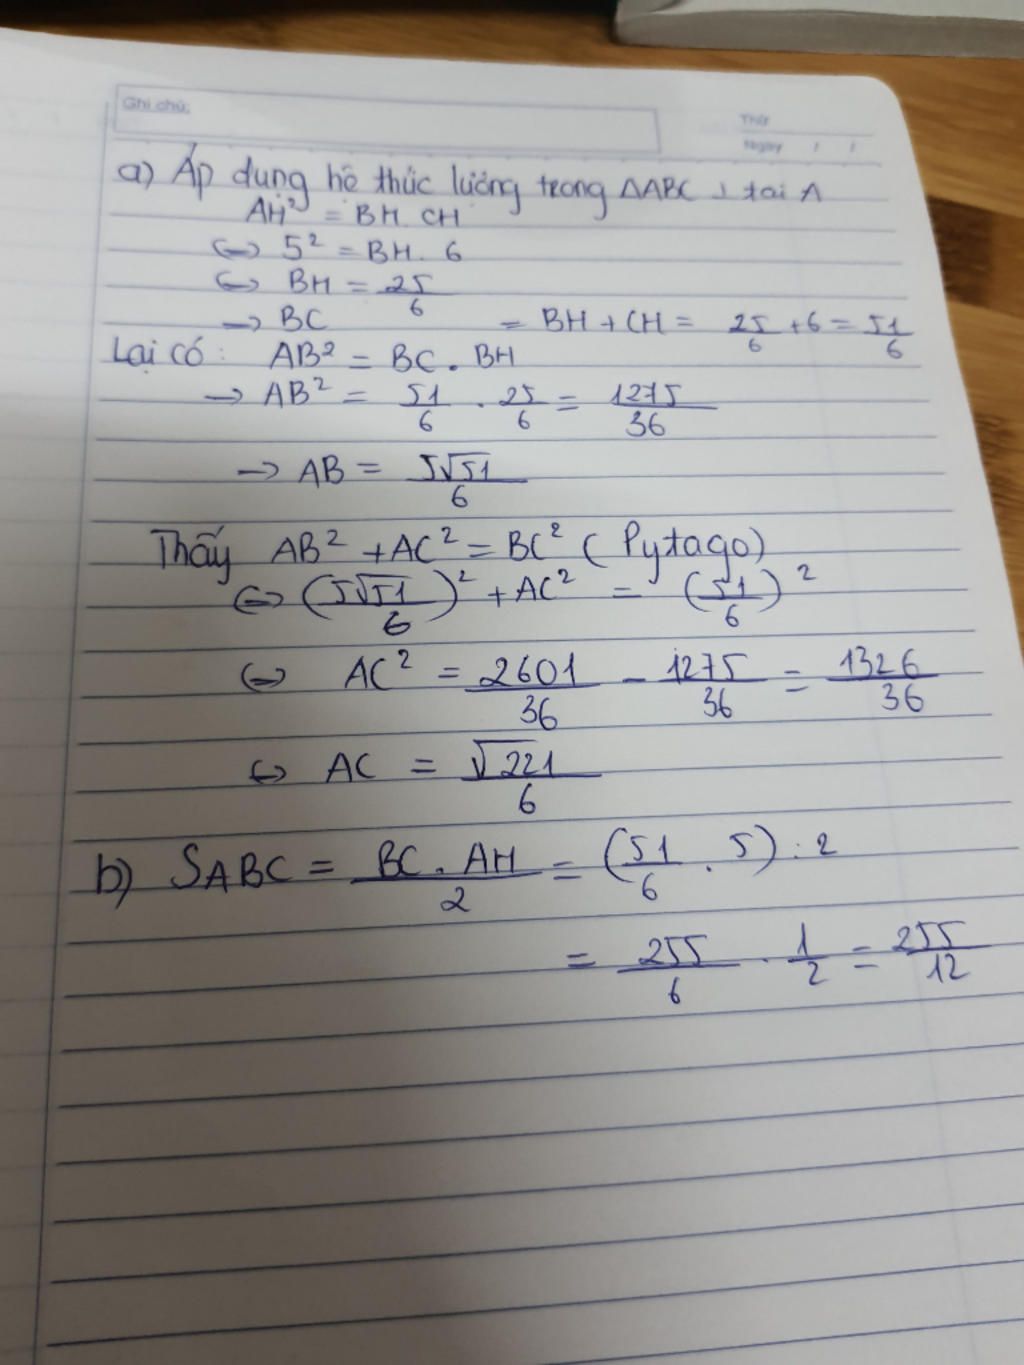 Ghi chú:
Thứ
Ngày / /
a) Áp dụng hệ thức lượng trong ΔABC ⊥ tại A
AH² = BH. CH
↔ 5² = BH. 6
↔ BH = 25/6
→ BC = BH + CH = 25/6 + 6 = 51/6
Lại có: AB² = BC . BH
→ AB² = 51/6 . 25/6 = 1275/36
→ AB = 5√51/6
Thấy AB² + AC² = BC² ( Pytago)
↔ (5√51/6)² + AC² = (51/6)²
↔ AC² = 2601/36 - 1275/36 = 1326/36
↔ AC = √221/6
b) SABC = BC . AH/2 = (51/6 . 5) : 2
= 255/6 . 1/2 = 255/12